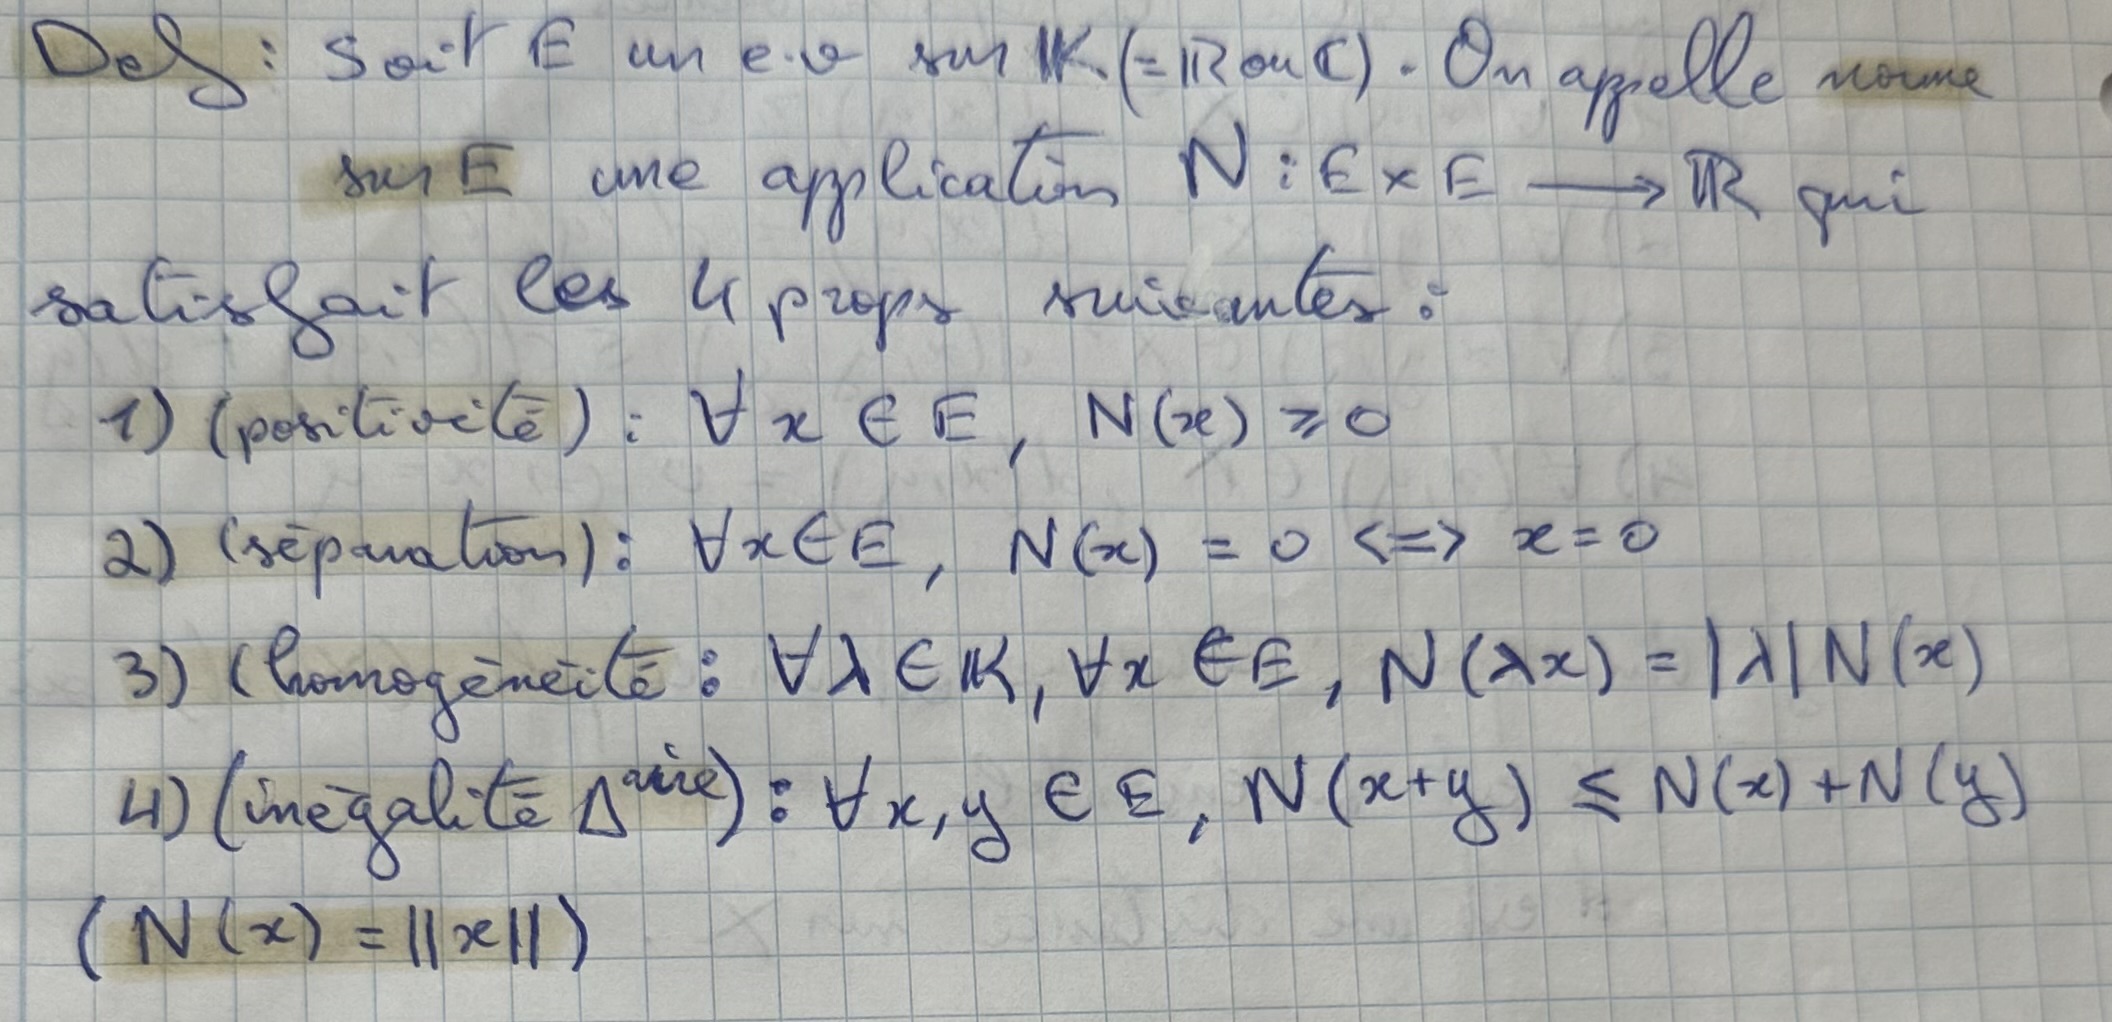 Def : Soit E un e.v sur 𝕂 (= ℝ ou ℂ). On appelle norme
sur E une application N : E × E ⟶ ℝ qui
satisfait les 4 props suivantes :
1) (positivité) : ∀ x ∈ E, N(x) ≥ 0
2) (séparation) : ∀x ∈ E, N(x) = 0 <=> x = 0
3) (homogénéité : ∀λ ∈ 𝕂, ∀x ∈ E, N(λx) = |λ| N(x)
4) (inégalité Δ^aire) : ∀x, y ∈ E, N(x+y) ≤ N(x) + N(y)
(N(x) = ||x||)